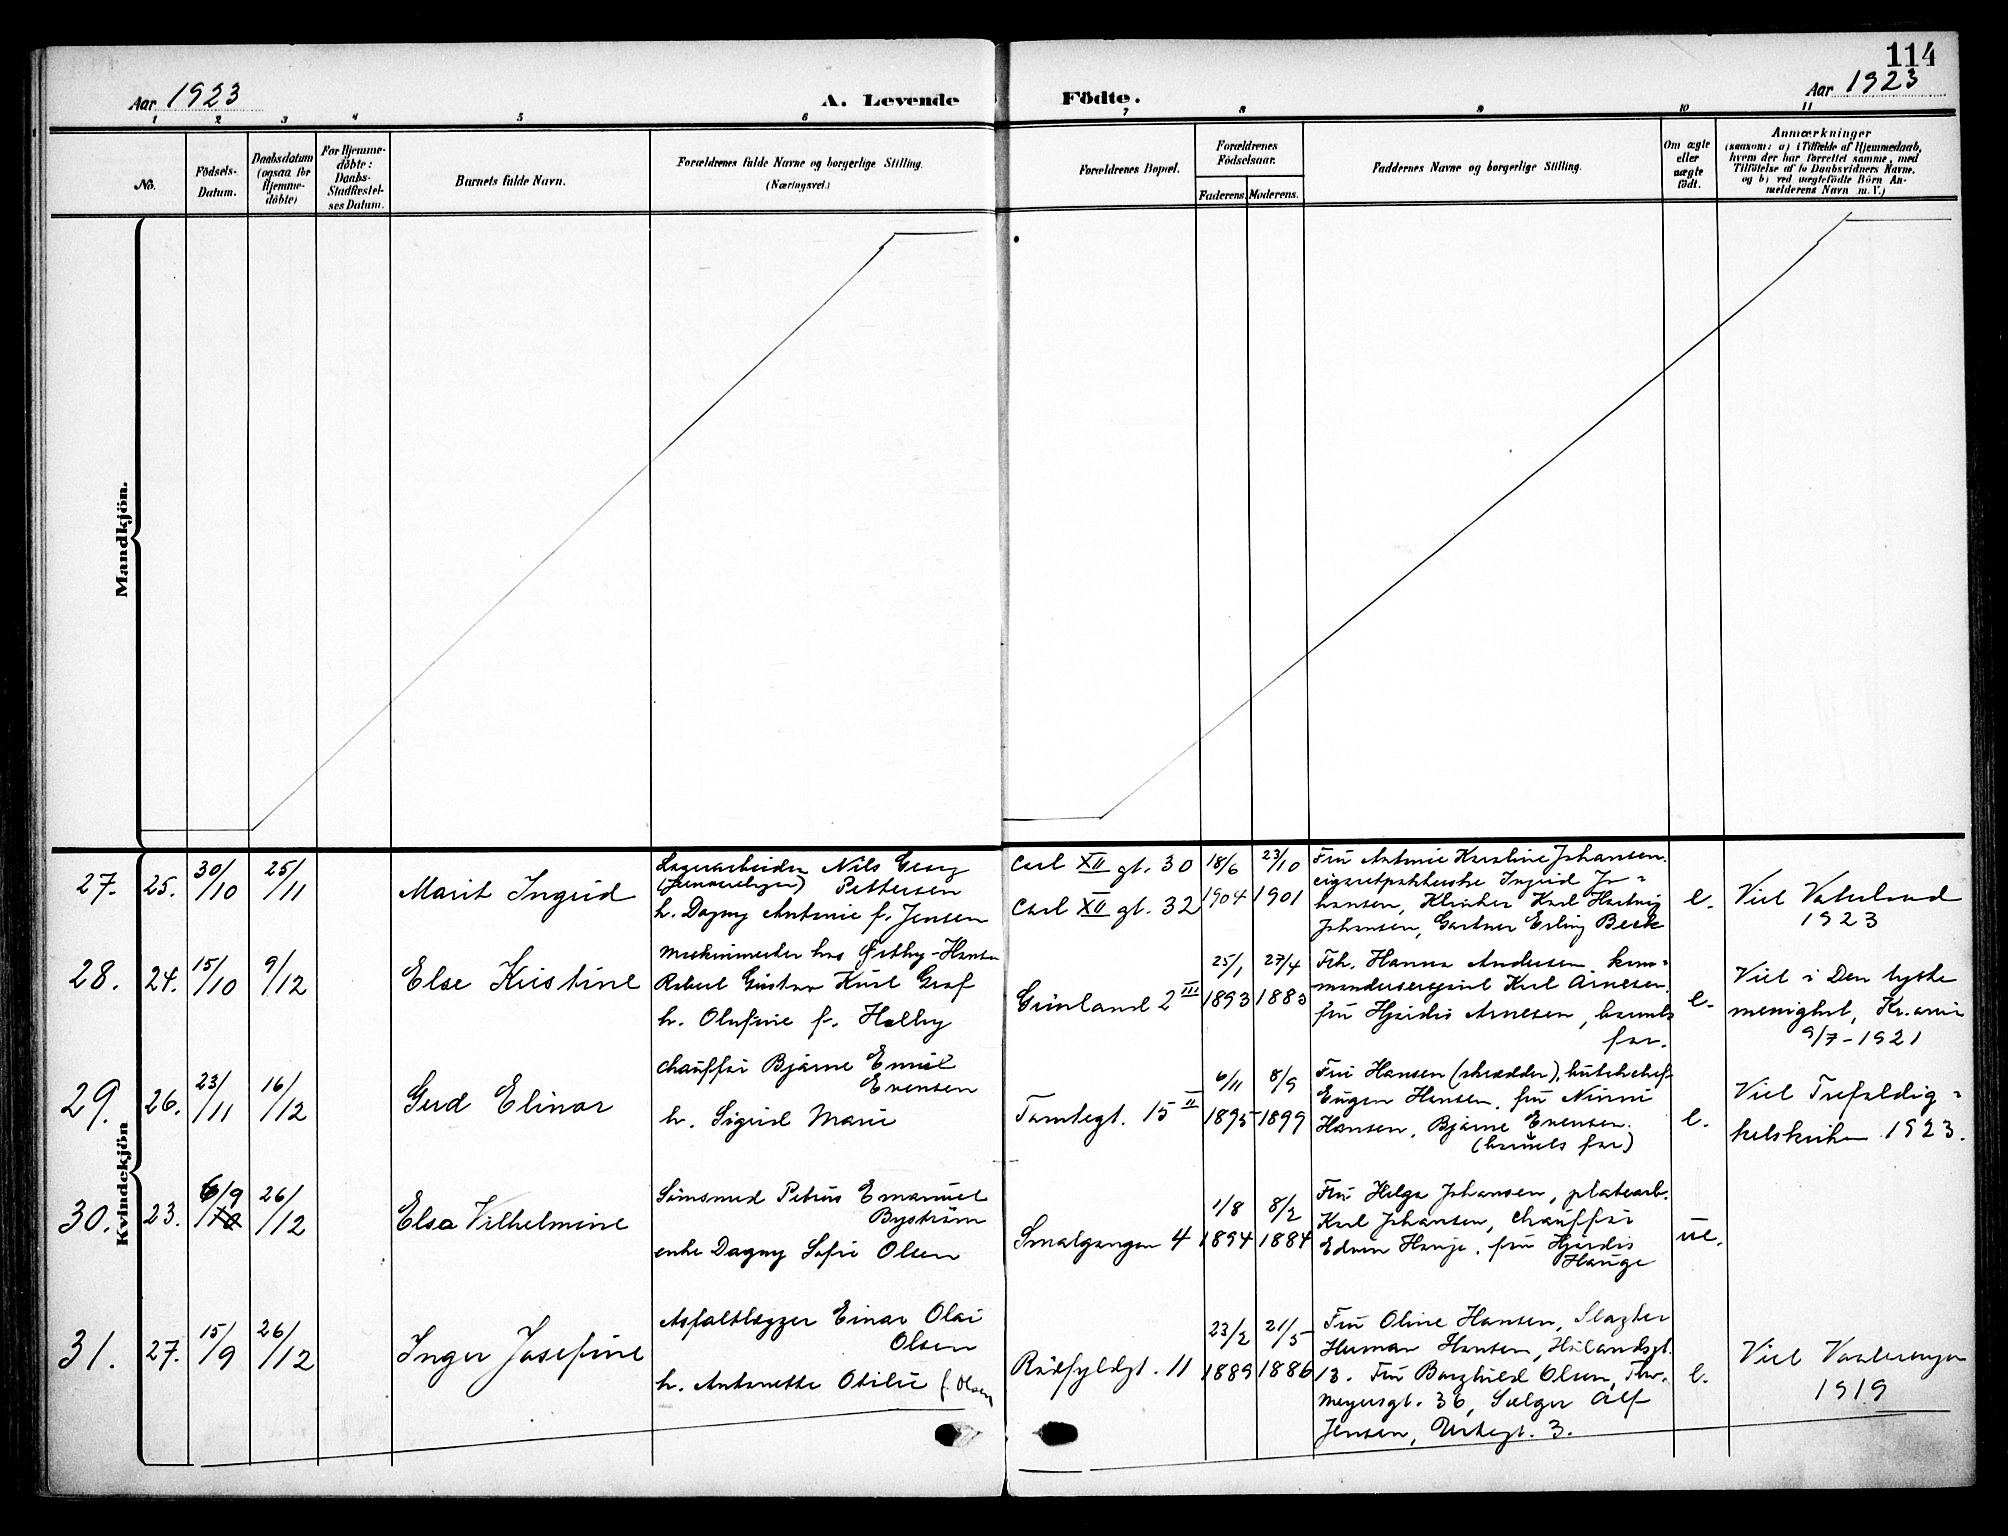 114
Aar 1923
A. Levende Födte.
Aar 1923
1 2 3 4 5 6 7 8 9 10 11
No.
Födsels-
Datum.
Daabsdatum
(ogsaa for
Hjemme-
döbte)
For Hjemme-
döbte:
Daabs-
Stadfæstel-
ses Datum.
Barnets fulde Navn.
Forældrenes fulde Navne og borgerlige Stilling.
(Næringsvei.)
Forældrenes Bopæl.
Forældrenes
Födselsaar.
Faderens. Moderens.
Faddernes Navne og borgerlige Stilling.
Om ægte
eller
uægte
födt.
Anmærkninger
(saasom: a) i Tilfælde af Hjemmedaab,
hvem der har forrettet samme, med
Tilföielse af to Daabsvidners Navne.
og b) ved uægtefödte Börn An-
melderens Navn m. V.)
Mandkjön.
Kvindekjön
27. 25. 30/10 25/11
Marit Ingrid
Lagerarbeider Nils Georg
Pettersen
h. Dagny Antonie f. Jensen
Carl XII gt. 30
Carl XII gt. 32
18/6 1904
23/10 1901
Fru Antonie Karoline Johansen.
cigaretpakkerske Ingrid Jo-
hansen, Karl Hartvig
Johansen, Gartner Erling Beck
e.
Viet Vaterland
1923
28. 24. 15/10 9/12
Else Kristine
Maskinmester hos Østby-Hansen
Robert Gustav Kurt Graf
h. Olufine f. Helby
Grönland 2 III
25/1 1893
27/4 1883
Frk. Hanna Andersen, kom-
mandersergiant Karl Arnesen.
fru Hjördis Arnesen, barnets
far.
e.
Viet i Den tyske
menighet, Kr.ania
9/7-1921
29. 26. 23/11 16/12
Gerd Elinor
Chaufför Bjarne Emil
Evensen
h. Sigrid Marie
Tomtegt. 15 II
6/11 1895
8/9 1899
Fru Hansen (skrædder),
Eugen Hansen. fru Ninni
Hansen, Bjarne Evensen.
(barnets far)
e.
Viet Trefoldig-
hetskirken 1923.
30. 23. 6/9 26/12
Elsa Vilhelmine
Sömsmed Petrus Emanuel
Byström
enke Dagny Sofie Olsen
Smalgangen 4
1/8 1894
8/2 1884
Fru Helga Johansen, platearb.
Karl Johansen, Chaufför
Edvin Hauge. fru Hjördis
Hauge
ue.
31. 27. 15/9 26/12
Inger Josefine
Asfaltlægger Einar Olai
Olsen
h. Antonette Otilie f. Olsen
Rödfyldgt. 11
23/2 1889
21/5 1886
Fru Oline Hansen, Slagter
Herman Hansen, Hölandsgt.
13. Fru Borghild Olsen, Thv.
Meyersgt. 36, Sælger Alf
Jensen, Urtegt. 3.
e.
Viet Vaalerengen
1919